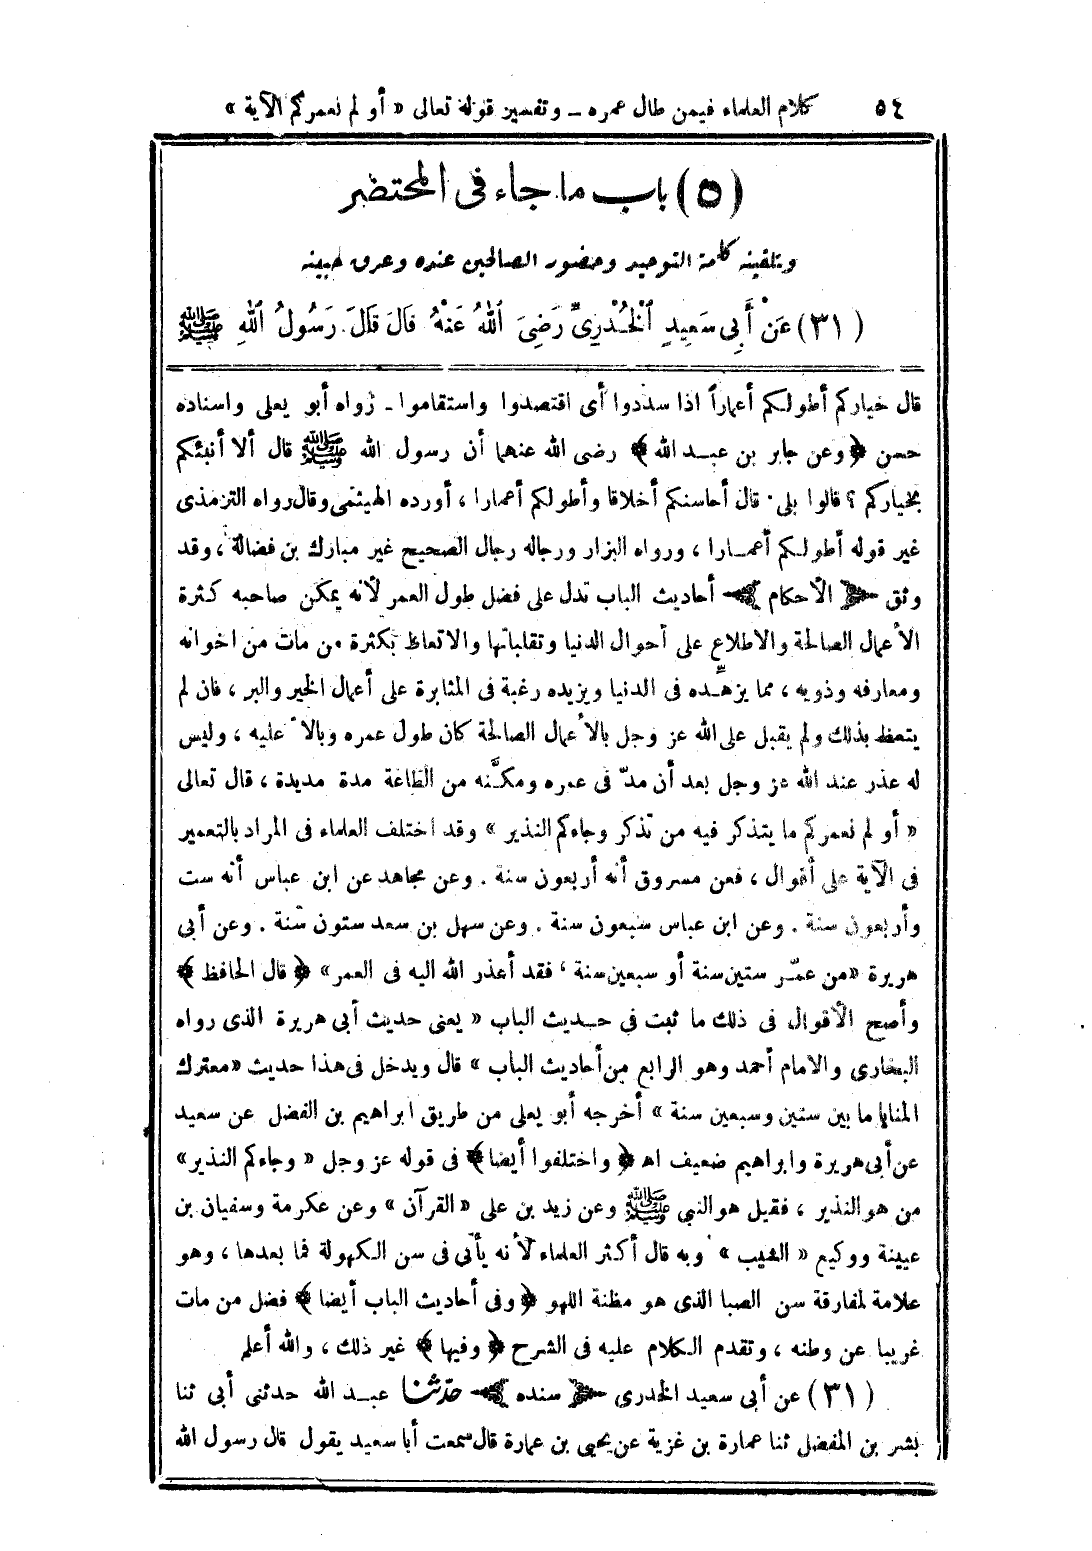 ٥٤ كلام العلماء فيمن طال عمره ـ وتفسير قوله تعالى « أو لم نعمركم الآية »
(٥) باب ما جاء فى المحتضر
وتلقينه كلمة التوحيد وحضور الصالحين عنده وعرق جبينه
(٣١) عَنْ أَبِى سَعِيدٍ ٱلْخُدْرِىِّ رَضِىَ ٱللهُ عَنْهُ قَالَ قَالَ رَسُولُ ٱللهِ ﷺ
قال خياركم أطولكم أعمارًا اذا سددوا أى اقتصدوا واستقاموا ـ رواه أبو يعلى واسناده
حسن ﴿وعن جابر بن عبد الله﴾ رضى الله عنهما أن رسول الله ﷺ قال ألا أنبئكم
بخياركم ؟ قالوا بلى. قال أحاسنكم أخلاقا وأطولكم أعمارا ، أورده الهيثمى وقال رواه الترمذى
غير قوله أطولكم أعمارا ، ورواه البزار ورجاله رجال الصحيح غير مبارك بن فضالة ، وقد
وثق ﴿ الأحكام ﴾ أحاديث الباب تدل على فضل طول العمر لأنه يمكن صاحبه كثرة
الأعمال الصالحة والاطلاع على أحوال الدنيا وتقلباتها والاتعاظ بكثرة من مات من اخوانه
ومعارفه وذويه ، مما يزهِّده فى الدنيا ويزيده رغبة فى المثابرة على أعمال الخير والبر ، فان لم
يتعظ بذلك ولم يقبل على الله عز وجل بالأعمال الصالحة كان طول عمره وبالا عليه ، وليس
له عذر عند الله عز وجل بعد أن مدّ فى عمره ومكَّنه من الطاعة مدة مديدة ، قال تعالى
« أو لم نعمركم ما يتذكر فيه من تذكر وجاءكم النذير » وقد اختلف العلماء فى المراد بالتعمير
فى الآية على أقوال ، فعن مسروق أنه أربعون سنة . وعن مجاهد عن ابن عباس أنه ست
وأربعون سنة . وعن ابن عباس سبعون سنة . وعن سهل بن سعد ستون سنة . وعن أبى
هريرة «من عمّر ستين سنة أو سبعين سنة ، فقد أعذر الله اليه فى العمر» ﴿ قال الحافظ ﴾
وأصح الأقوال فى ذلك ما ثبت فى حديث الباب « يعنى حديث أبى هريرة الذى رواه
البخارى والامام أحمد وهو الرابع من أحاديث الباب » قال ويدخل فى هذا حديث «معترك
المنايا ما بين ستين وسبعين سنة » أخرجه أبو يعلى من طريق ابراهيم بن الفضل عن سعيد
عن أبى هريرة وابراهيم ضعيف اه ﴿ واختلفوا أيضا﴾ فى قوله عز وجل « وجاءكم النذير»
من هو النذير ، فقيل هو النبى ﷺ وعن زيد بن على «القرآن » وعن عكرمة وسفيان بن
عيينة ووكيع « الشيب » وبه قال أكثر العلماء لأنه يأتى فى سن الكهولة فما بعدها ، وهو
علامة لمفارقة سن الصبا الذى هو مظنة اللهو ﴿ وفى أحاديث الباب أيضا ﴾ فضل من مات
غريبا عن وطنه ، وتقدم الكلام عليه فى الشرح ﴿ وفيها ﴾ غير ذلك ، والله أعلم
(٣١) عن أبى سعيد الخدرى ﴿ سنده ﴾ حدّثنا عبد الله حدثنى أبى ثنا
بشر بن المفضل ثنا عمارة بن غزية عن يحيى بن عمارة قال سمعت أبا سعيد يقول قال رسول الله